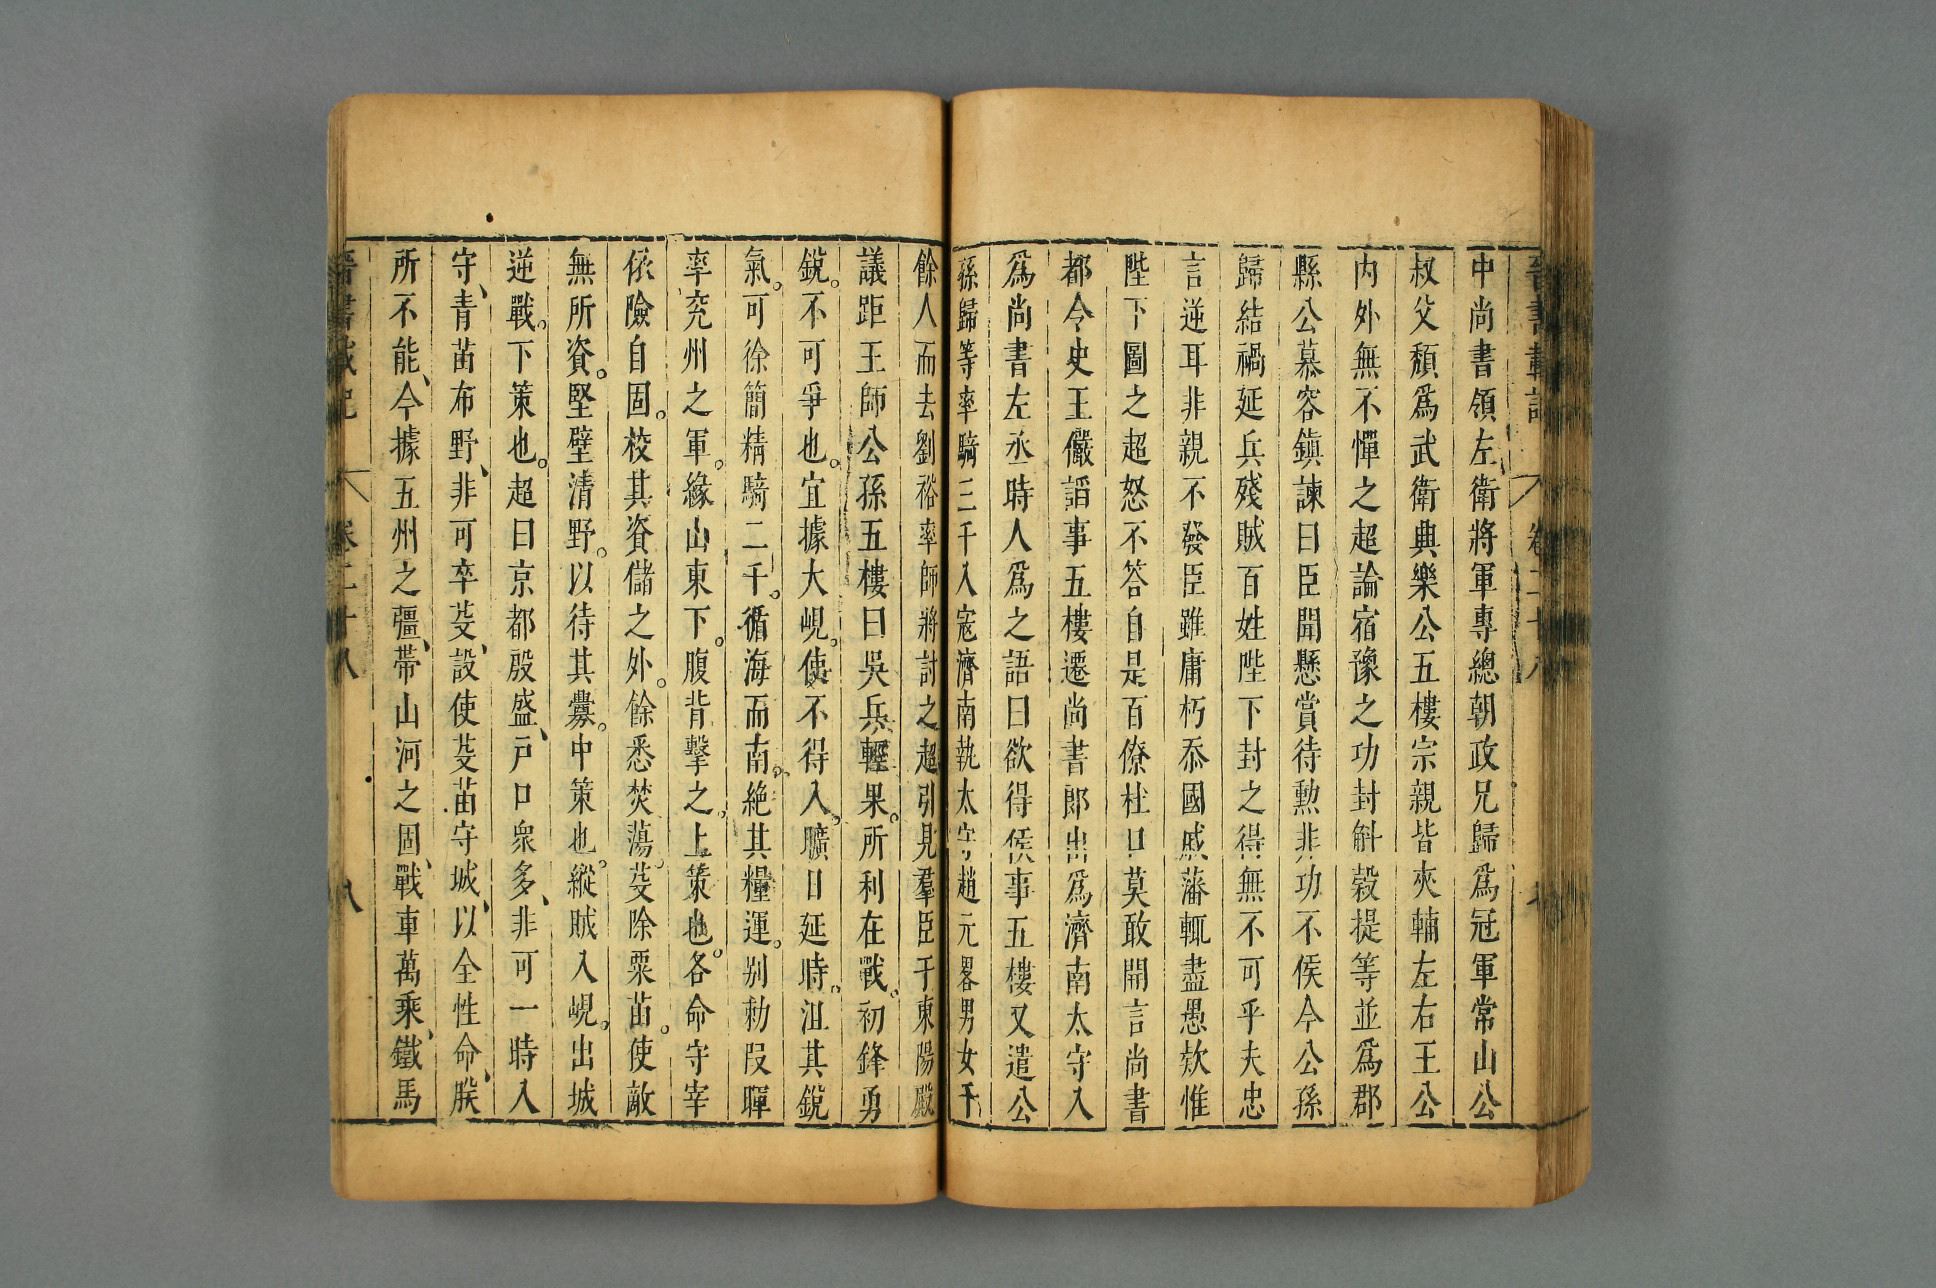 晉書載記 卷二十八 七
中尚書領左衛將軍專總朝政兄歸爲冠軍常山公
叔父頹爲武衛典樂公五樓宗親皆夾輔左右王公
内外無不憚之超論宿豫之功封斛榖提等並爲郡
縣公慕容鎭諫曰臣聞懸賞待勲非功不侯今公孫
歸結禍延兵殘賊百姓陛下封之得無不可乎夫忠
言逆耳非親不發臣雖庸朽忝國戚藩輒盡愚欵惟
陛下圖之超怒不答自是百僚杜口莫敢開言尚書
都令史王儼謟事五樓遷尚書郎出爲濟南太守入
爲尚書左丞時人爲之語曰欲得侯事五樓又遣公
孫歸等率騎三千入寇濟南執太守趙元畧男女千
餘人而去劉裕率師將討之超引見羣臣于東陽殿
議距王師公孫五樓曰吳兵輕果。所利在戰。初鋒勇
銳。不可爭也。宜據大峴。使不得入。曠日延時。沮其銳
氣。可徐簡精騎二千。循海而南。絶其糧運。别勅段暉
率兖州之軍。緣山東下。腹背擊之。上策也。各命守宰
依險自固。校其資儲之外。餘悉焚蕩。芟除粟苗。使敵
無所資。堅壁清野。以待其釁。中策也。縱賊入峴。出城
逆戰。下策也。超曰京都殷盛、戸口衆多、非可一時入
守、青苗布野、非可卒芟、設使芟苗守城、以全性命、朕
所不能、今據五州之彊、帶山河之固、戰車萬乘、鐵馬
晉書載記 卷二十八 八